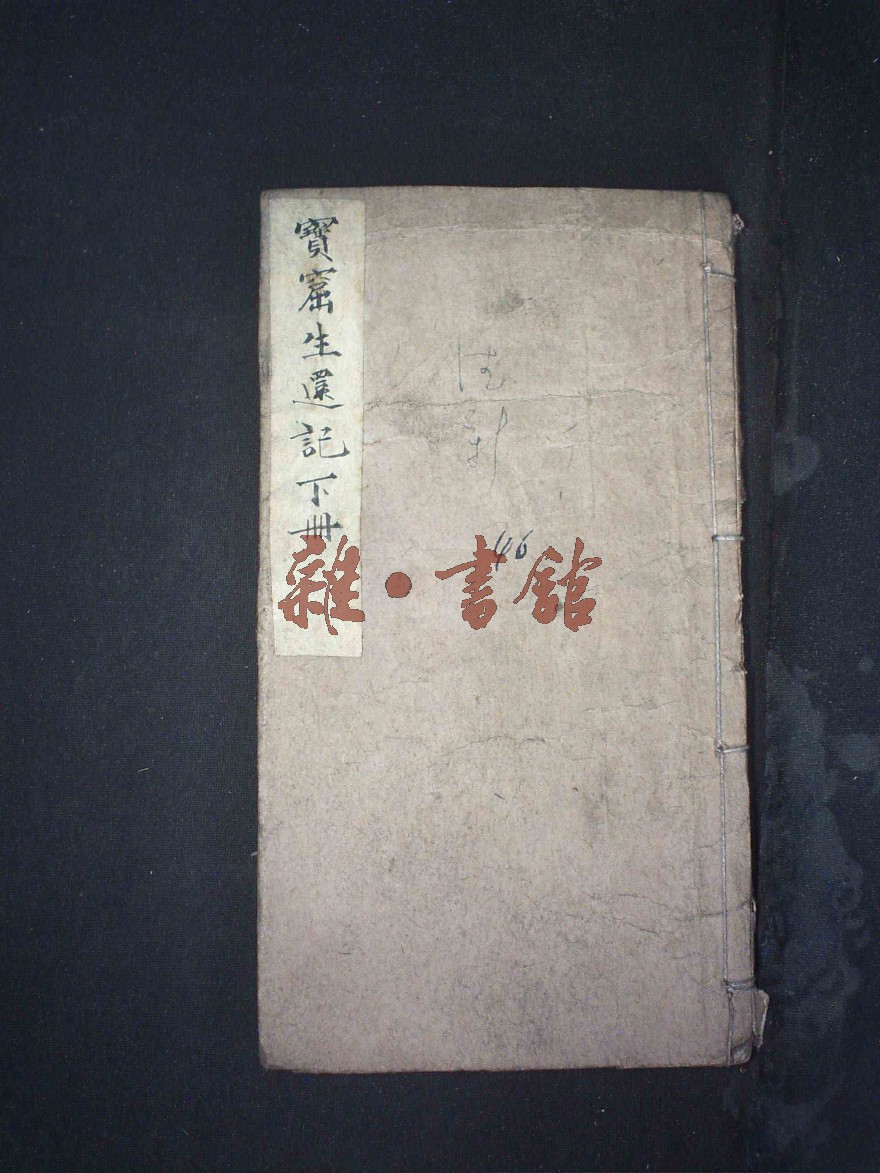 寶窟生還記下冊
46
雜·書館